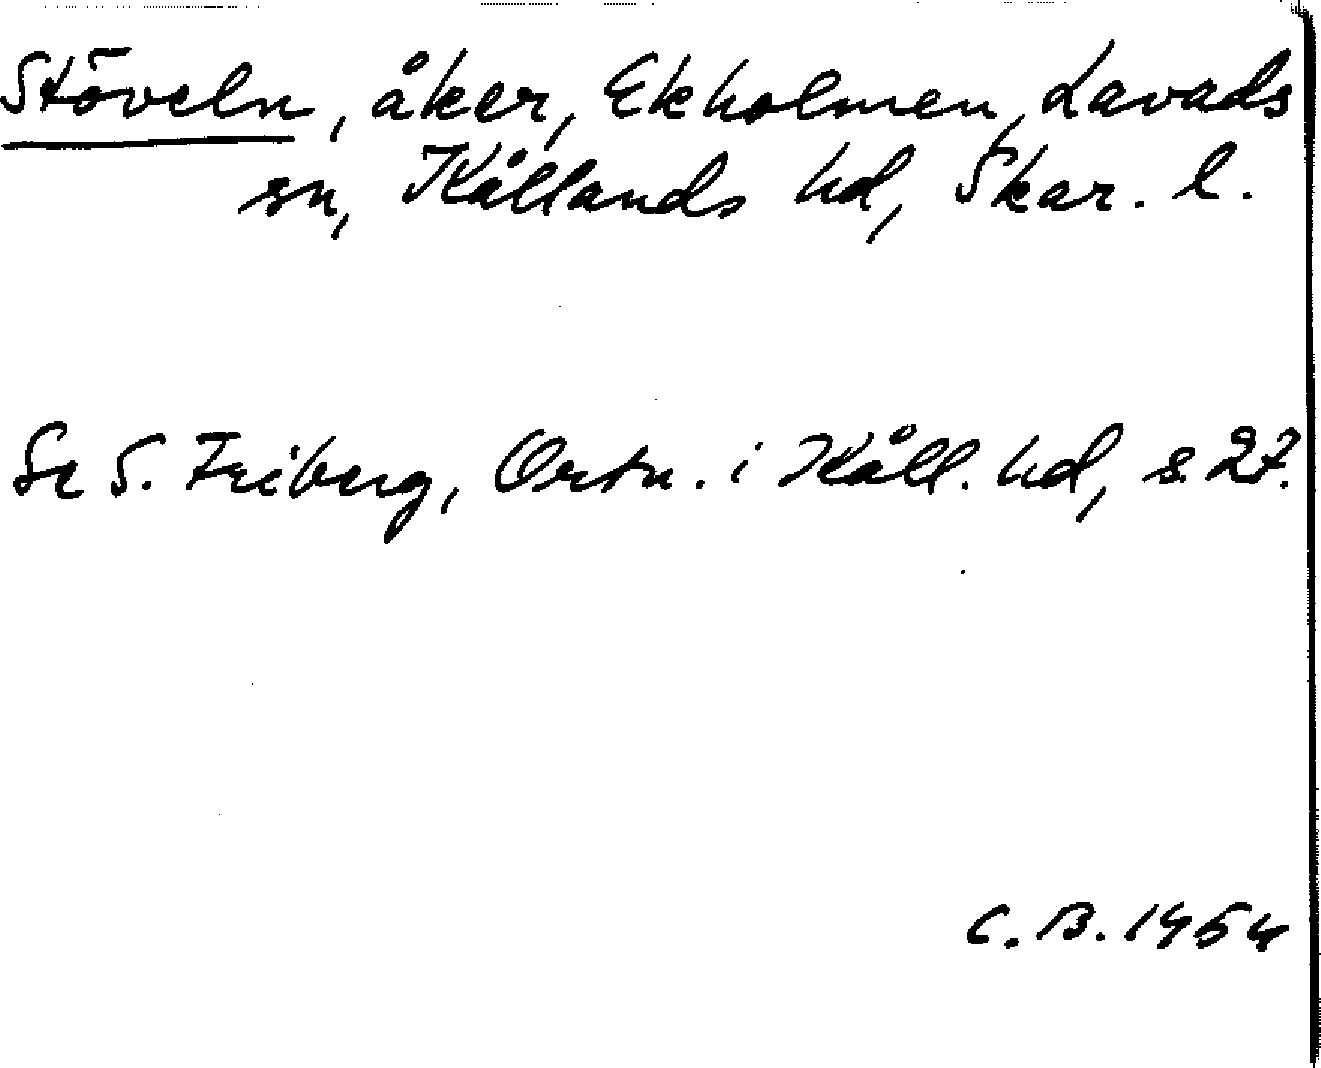 Stöveln, åker, Ekholmen, Lavads
sn, Kållands hd, Skar. l.
Se S. Friberg, Ortn. i Kåll. hd, s. 27.
C. B. 1954